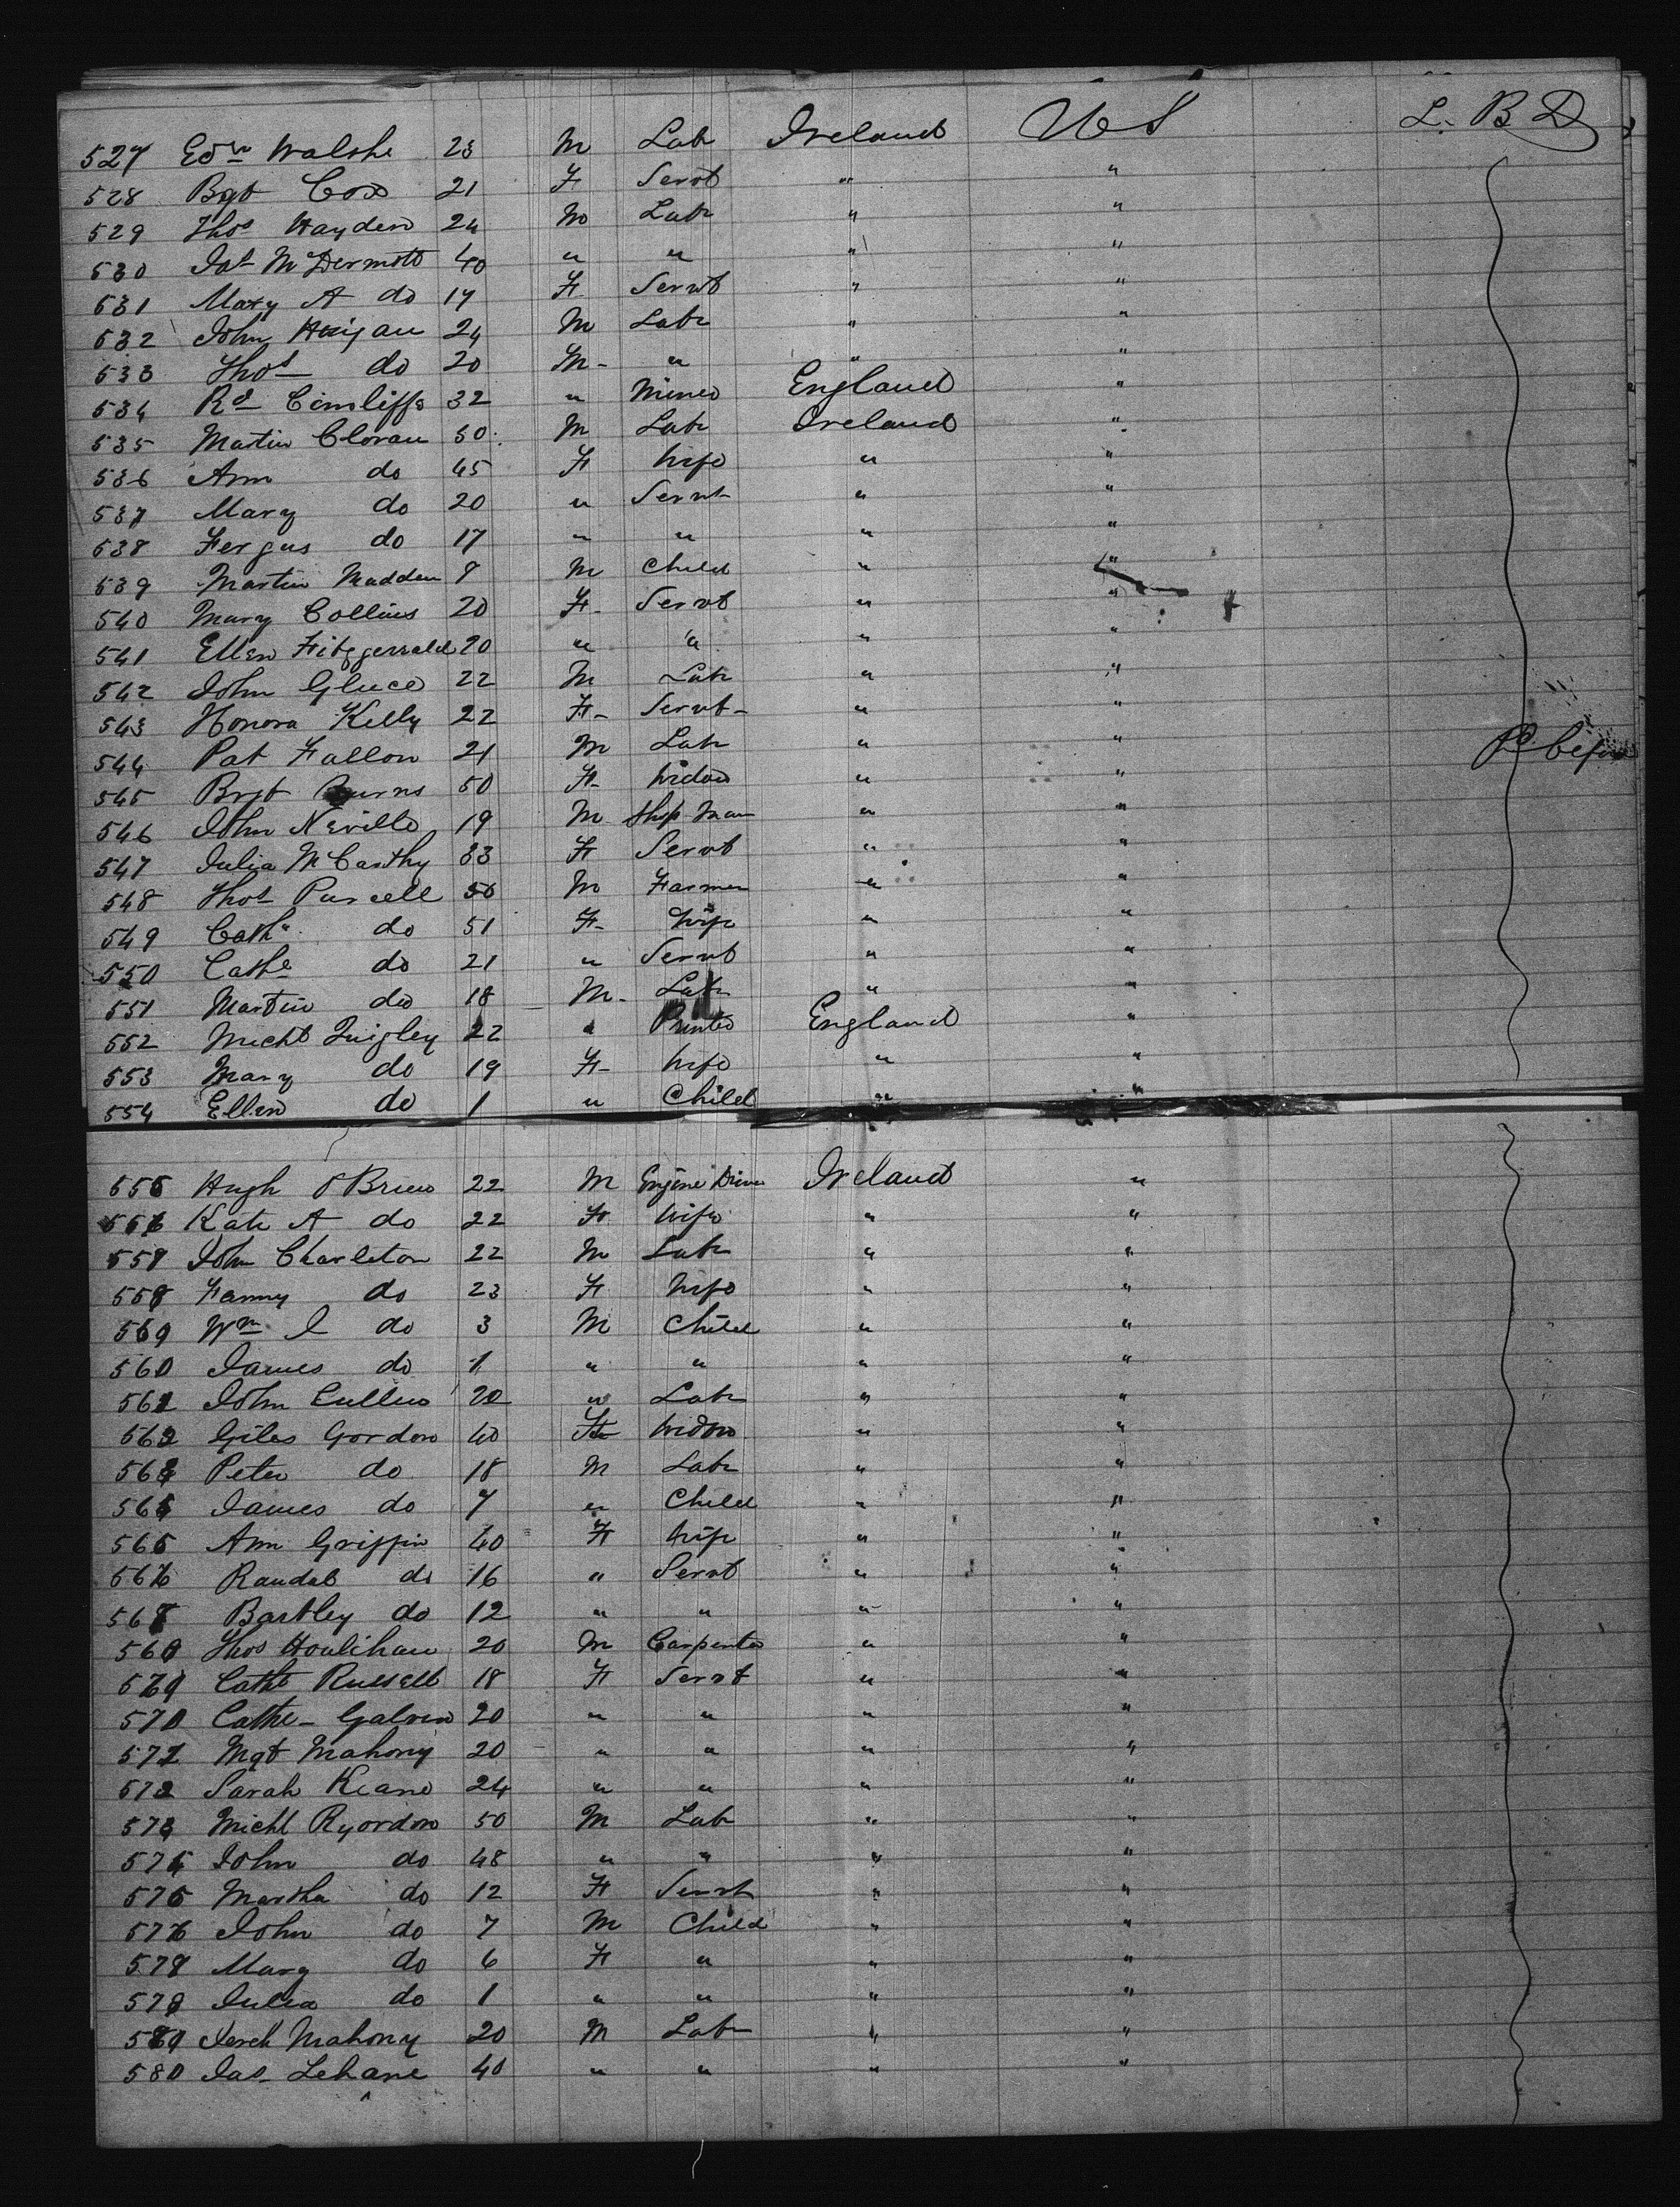 527 Edwd Walshe 23 M Labr Ireland U S L. B D
528 Bgt Cox 21 F Servt " "
529 Thos Hayden 24 M Labr " "
530 Jas McDermott 40 " " " "
531 Mary A do 17 F Servt " "
532 John 24 M Labr " "
533 Thos do 20 M " " "
534 Rd 32 " Miner England "
535 Martin Cloran 50 M Labr Ireland "
536 Ann do 45 F Wife " "
537 Mary do 20 " Servt " "
538 Fergus do 17 " " " "
539 Martin Madden 8 M Child " "
540 Mary Collins 20 F Servt " "
541 Ellen Fitzgerrald 20 " " " "
542 John 22 M Labr " "
543 Honora Kelly 22 F Servt " "
544 Pat Fallon 21 M Labr " "
545 Brgt 50 F Widow " "
546 John Neville 19 M Shop Man " "
547 Julia McCarthy 33 F Servt " "
548 Thos Purcell 50 M Farmer " "
549 Cathe do 51 F Wife " "
550 Cathe do 21 " Servt " "
551 Martin do 18 M Labr " "
552 Michl Quigley 22 " Printer England "
553 Mary do 19 F Wife " "
554 Ellen do 1 " Child " "
555 Hugh O Brien 22 M Engine Driver Ireland "
556 Kate A do 22 F Wife " "
557 John Charleton 22 M Labr " "
558 Fanny do 23 F Wife " "
559 Wm J do 3 M Child " "
560 James do 1 " " " "
561 John Cullen 20 " Labr " "
562 Giles Gordon 40 F Widow " "
563 Peter do 18 M Labr " "
564 James do 7 " Child " "
565 Ann Griffin 40 F Wife " "
566 Randal do 16 " Servt " "
567 Bartley do 12 " " " "
568 Thos Houlihan 20 M Carpenter " "
569 Cathe Russell 18 F Servt " "
570 Cathe Galvin 20 " " " "
571 Mgt Mahony 20 " " " "
572 Sarah Keane 24 " " " "
573 Michl Ryordon 50 M Labr " "
574 John do 48 " " " "
575 Martha do 12 F Servt " "
576 John do 7 M Child " "
577 Mary do 6 F " " "
578 Julia do 1 " " " "
579 Jereh Mahony 20 M Labr " "
580 Jas Lehane 40 " " " "